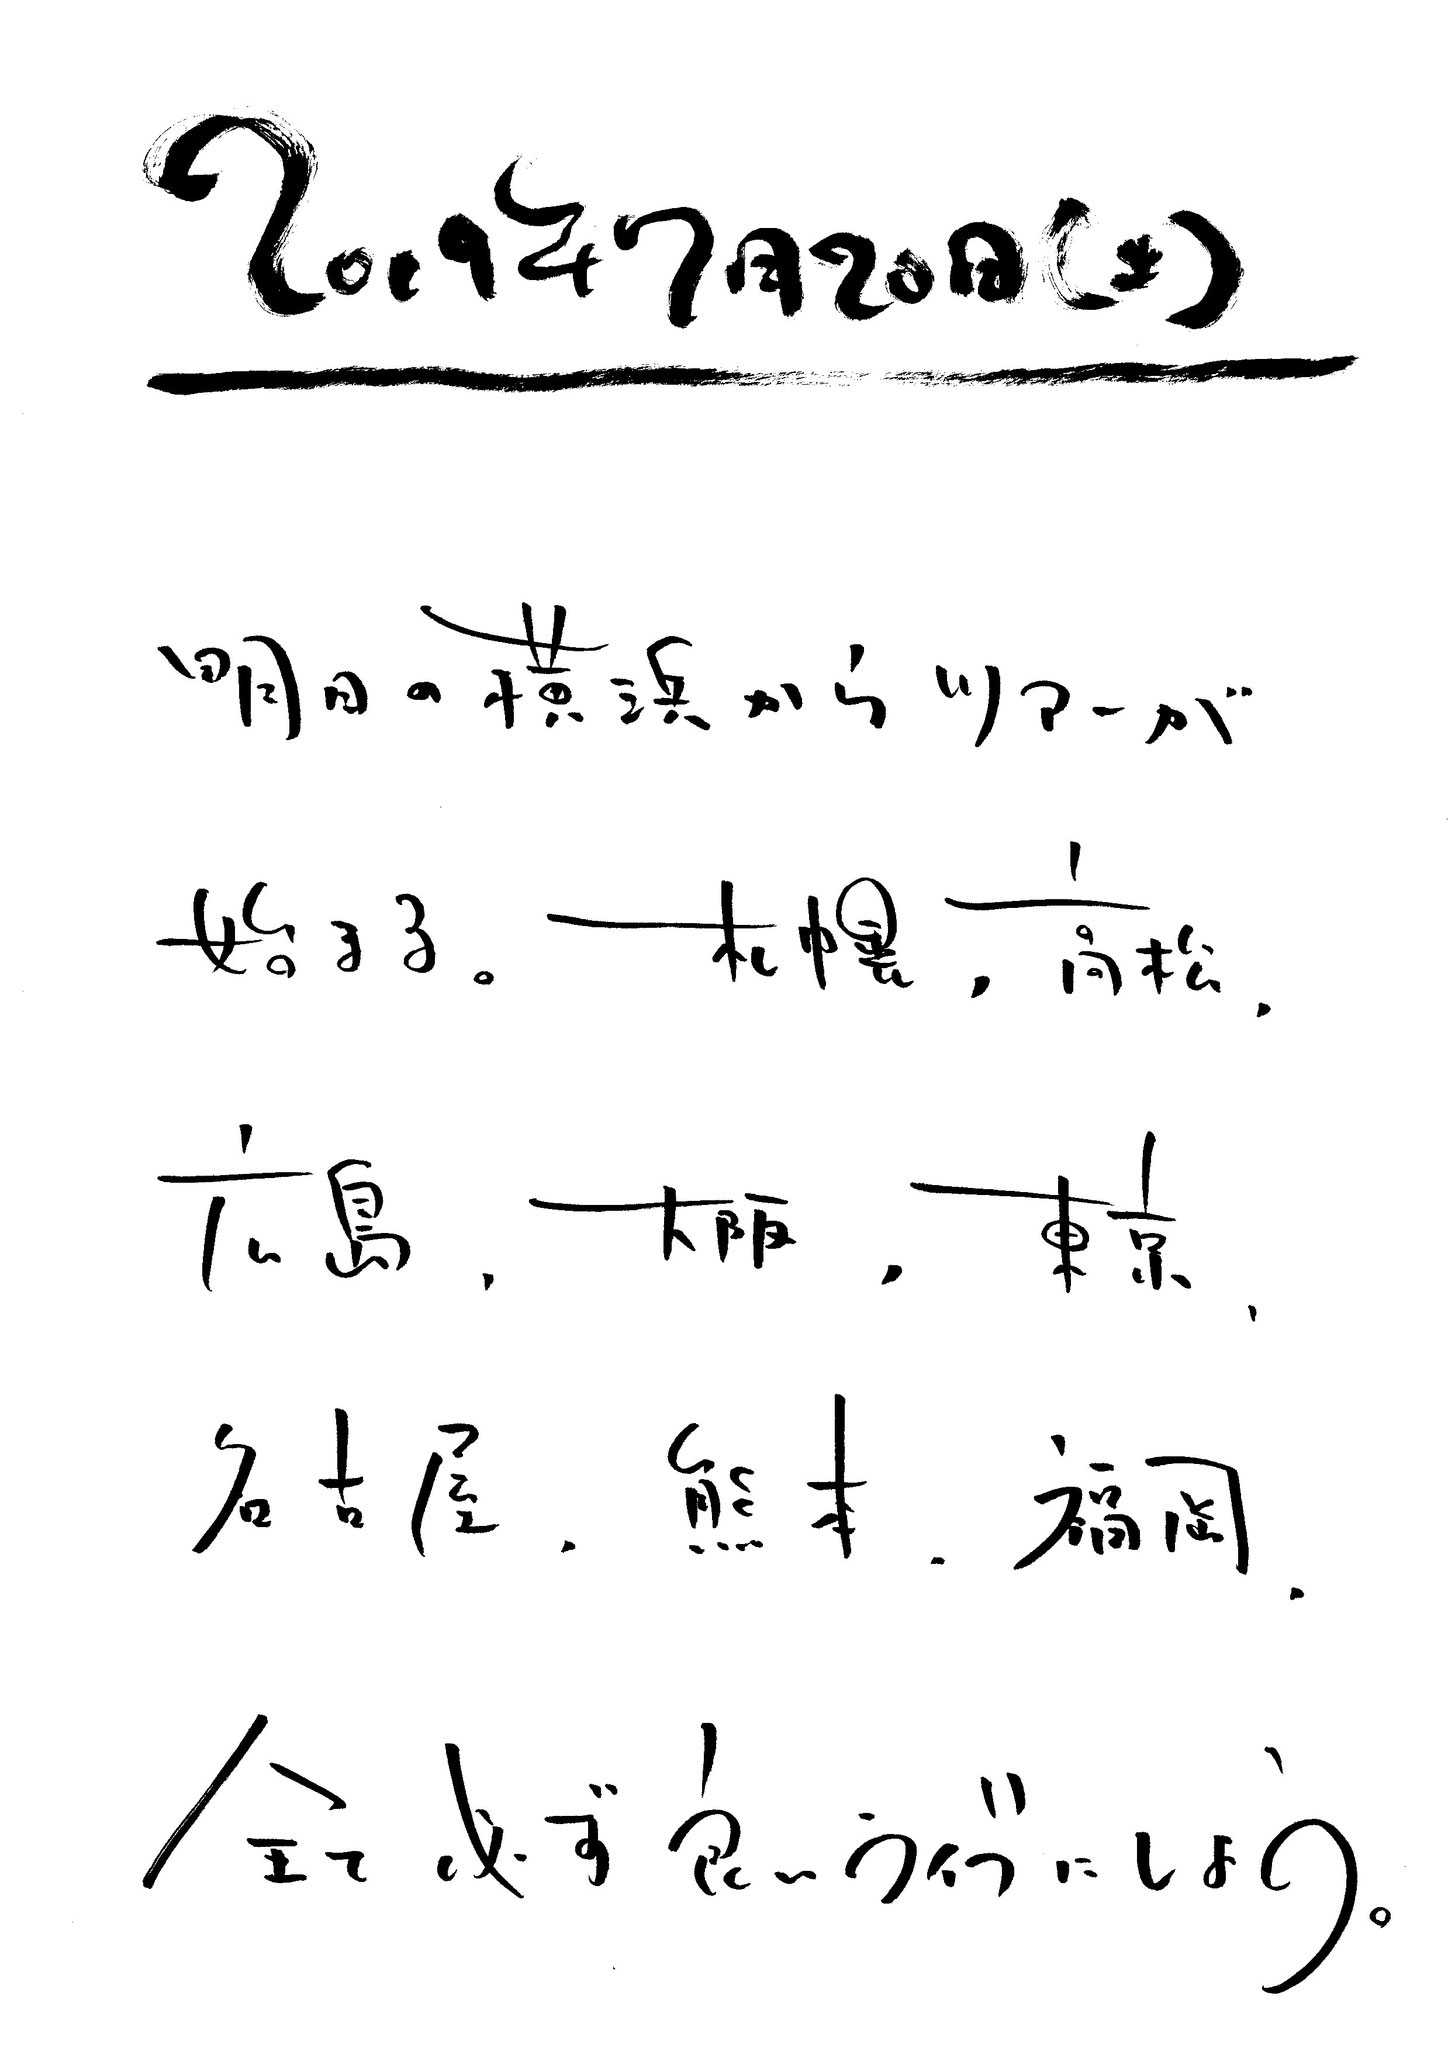 2019年7月20日(土)
明日の横浜からツアーが
始まる。札幌、高松、
広島、大阪、東京、
名古屋、熊本、福岡、
全て必ず良いライブにしよう。